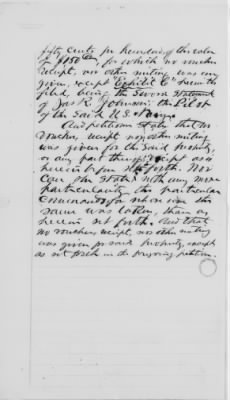 fifty cents per hundred the value
of $150 for which no voucher
receipt, nor other writing was ever
given, except "Exhibit C" herewith
filed, being the sworn statement
of Jas R. Johnson, the Pilot
of the said U.S.
And petitioner states that no
voucher, receipt nor other writing
was given for the said property,
or any part thereof except as
herein before set forth. Nor
can she state with any more
particularity the particular
command for whose use the
same was taken, than as
herein set forth. And that
no voucher, receipt, nor other writing
was given for said property, except
as set forth in the foregoing petition.